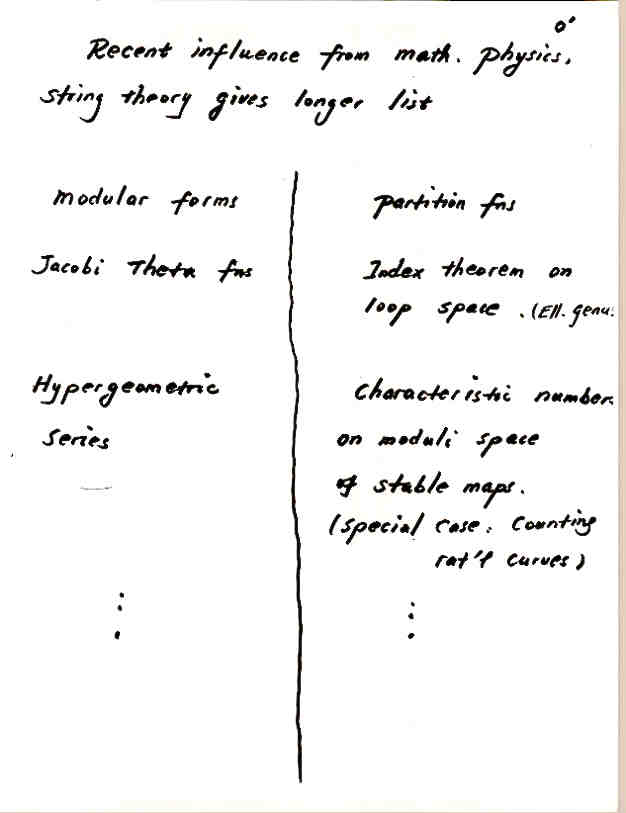 0'
Recent influence from math. physics,
string theory gives longer list
Modular forms
Jacobi Theta fns
Hypergeometric
Series
partition fns
Index theorem on
loop space . (Ell. genu
Characteristic number
on moduli space
of stable maps.
(special case : Counting
rat'l curves)